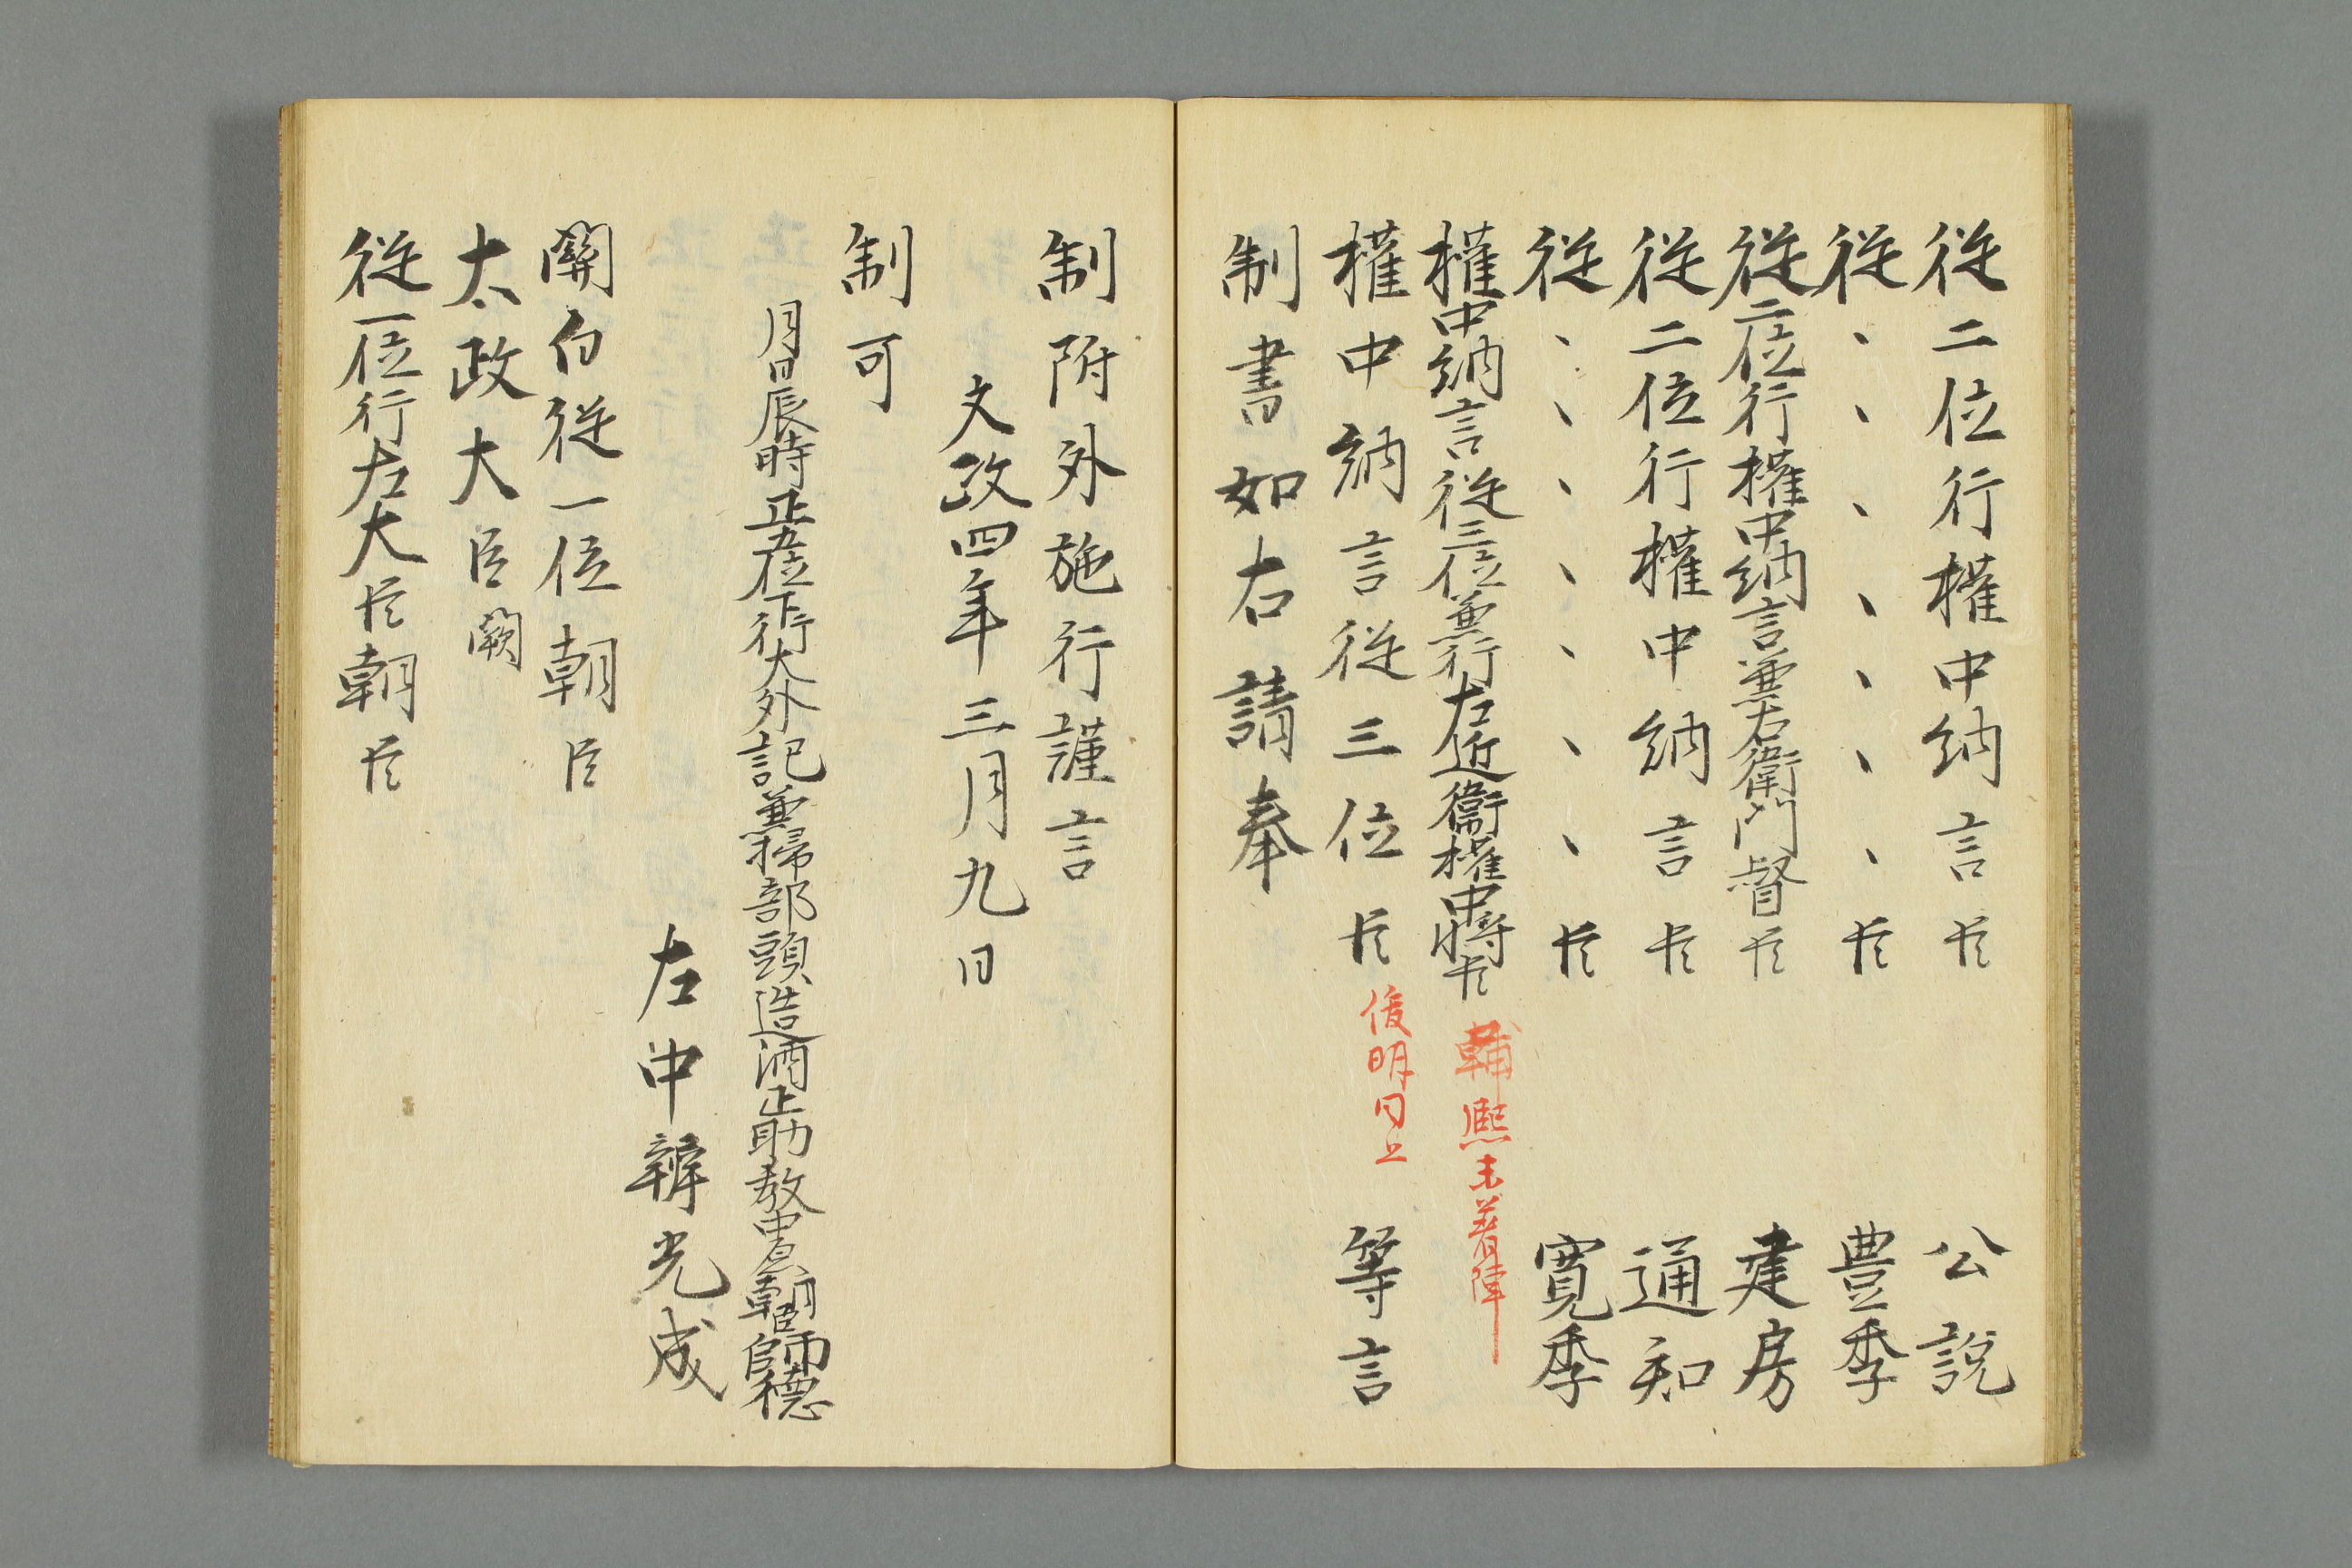 従二位行權中納言臣 公説
従、、、、、、、臣 豊季
従二位行權中納言兼右衛門督臣 建房
従二位行權中納言臣 通知
従、、、、、、、臣 寛季
權中納言従三位兼行左近衞權中將臣 輔熈未着陣
權中納言従三位臣 俊明同上 等言
制書如右請奉
制附外施行謹言
文政四年三月九日
制可
月日辰時正五位下行大外記兼掃部頭造酒正助教中原朝臣師德
左中辨光成
關白従一位朝臣
太政大臣闕
従一位行左大臣朝臣